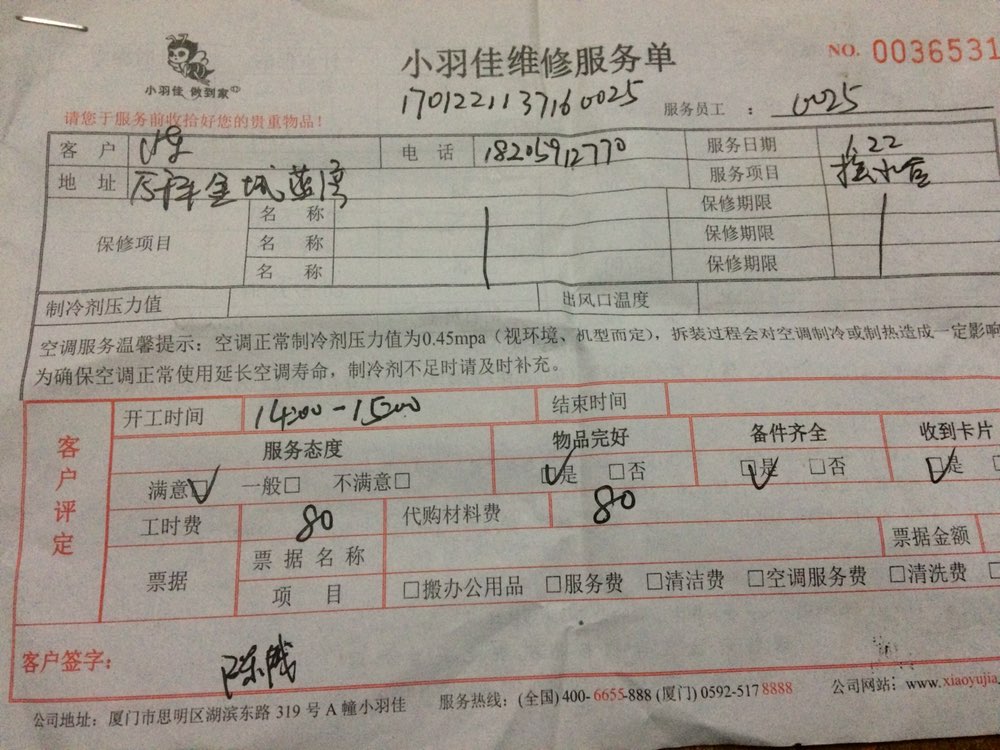 小羽佳 做到家
小羽佳维修服务单
NO. 0036531
170122113716 0025
服务员工 : 0025
请您于服务前收拾好您的贵重物品!
客 户 电 话 18205912770 服务日期 1.22
地 址 金城蓝湾 服务项目
保修项目
名 称 保修期限
名 称 保修期限
名 称 保修期限
制冷剂压力值 出风口温度
空调服务温馨提示：空调正常制冷剂压力值为0.45mpa（视环境、机型而定），拆装过程会对空调制冷或制热造成一定影响
为确保空调正常使用延长空调寿命，制冷剂不足时请及时补充。
客户评定
开工时间 14:00-15:00 结束时间
服务态度 物品完好 备件齐全 收到卡片
满意☑ 一般□ 不满意□ ☑是 □否 ☑是 □否 ☑是 □
工时费 80 代购材料费 80
票据 票据名称 票据金额
项 目 □搬办公用品 □服务费 □清洁费 □空调服务费 □清洗费 □
客户签字：
公司地址：厦门市思明区湖滨东路 319 号 A 幢小羽佳 服务热线：(全国) 400-6655-888 (厦门) 0592-5178888 公司网站：www.xiaoyujia.